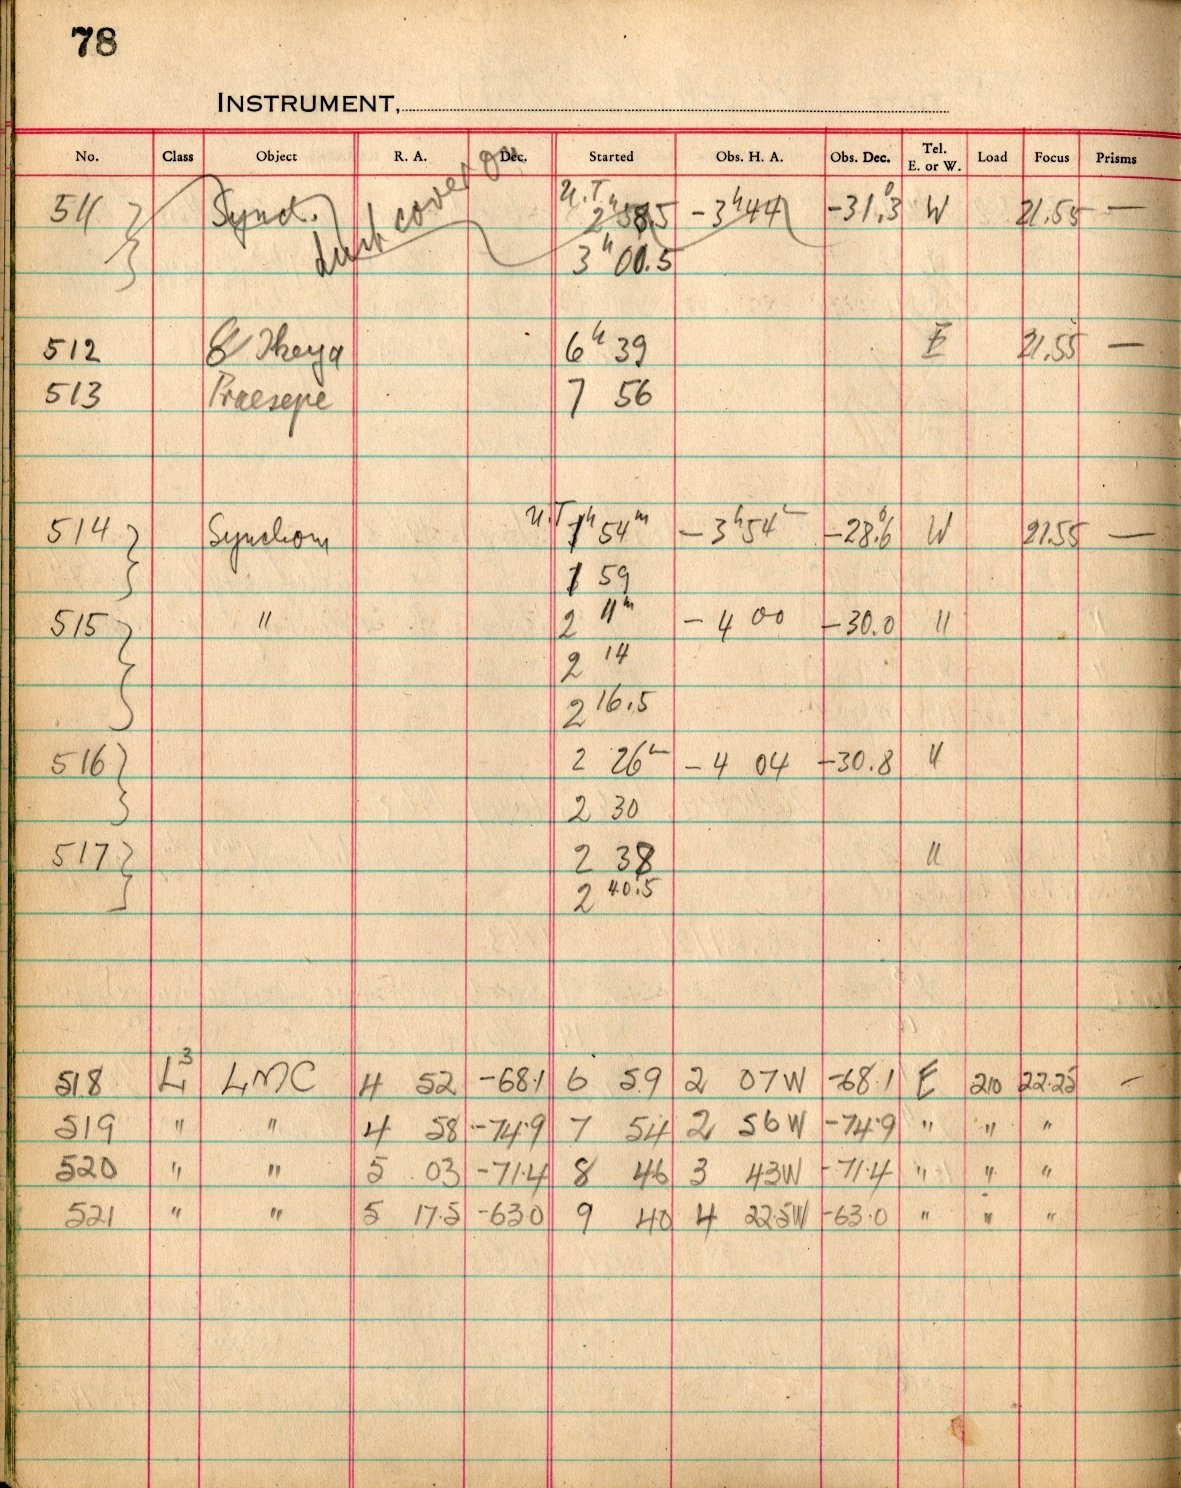 78
INSTRUMENT,
No. Class Object R. A. Dec. Started Obs. H. A. Obs. Dec. Tel. E. or W. Load Focus Prisms
511 Synch. dust cover on U.T. 2h 58.5 -3h44 -31.°3 W 21.55 —
3h 00.5
512 Ikeya 6h 39 E 21.55 —
513 Praesepe 7 56
514 Synchrom U.T 1h 54m -3h54m -28.°6 W 21.55 —
1 59
515 " 2 11m -4 00 -30.0 "
2 14
2 16.5
516 2 26m -4 04 -30.8 "
2 30
517 2 38 "
2 40.5
518 L3 LMC 4 52 -68.1 6 59 2 07W -68.1 E 210 22.25 —
519 " " 4 58 -74.9 7 54 2 56W -74.9 " " "
520 " " 5 03 -71.4 8 46 3 43W -71.4 " " "
521 " " 5 17.5 -63.0 9 40 4 22.5W -63.0 " " "